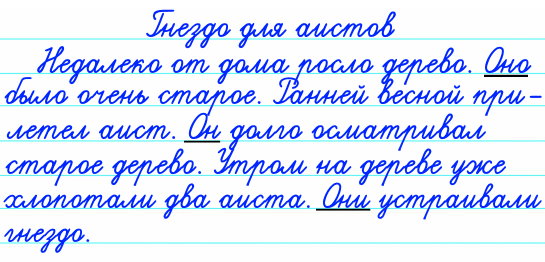 Гнездо для аистов
Недалеко от дома росло дерево. Оно
было очень старое. Ранней весной при-
летел аист. Он долго осматривал
старое дерево. Утром на дереве уже
хлопотали два аиста. Они устраивали
гнездо.